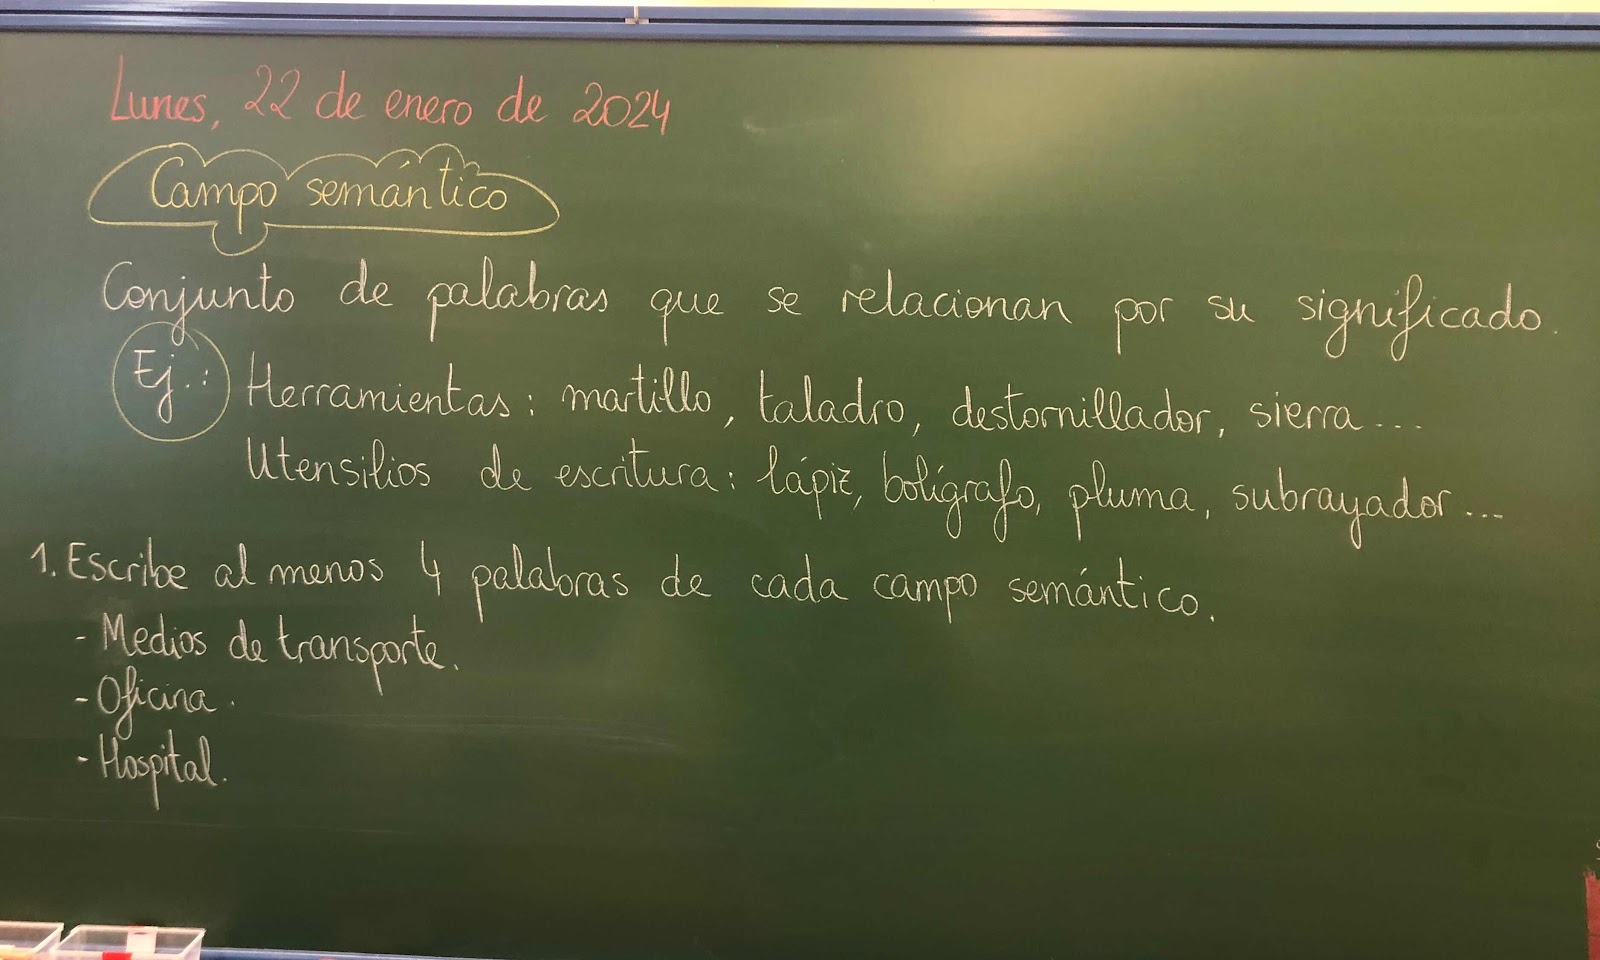 Lunes, 22 de enero de 2024
Campo semántico
Conjunto de palabras que se relacionan por su significado.
Ej.: Herramientas: martillo, taladro, destornillador, sierra...
Utensilios de escritura: lápiz, bolígrafo, pluma, subrayador...
1. Escribe al menos 4 palabras de cada campo semántico.
- Medios de transporte.
- Oficina.
- Hospital.